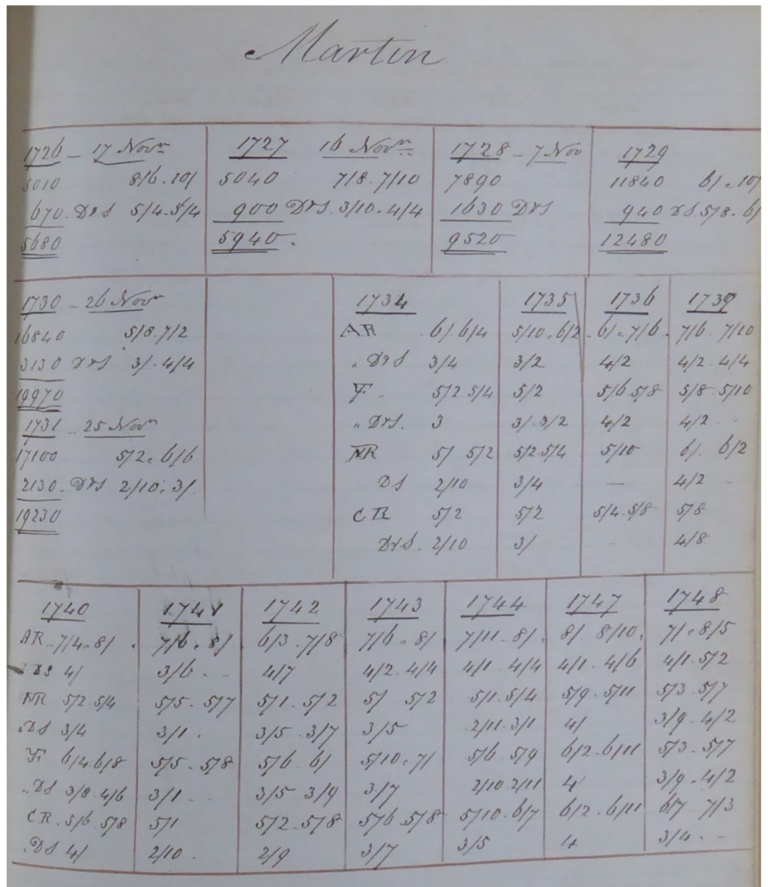 Martin
1726 - 17 Novr
5010 8/6 . 10/
670 . DrS 5/4 . 5/4
5680
1727 16 Novr
5040 7/8 . 7/10
900 DrS . 3/10 . 4/4
5940 .
1728 - 7 Nov
7890
1630 DrS
9520
1729
11840 6/ . 10/
940 DS 5/8 . 6/
12480
1730 - 26 Novr
16840 5/8 . 7/2
3130 DrS 3/ . 4/4
19970
1731 - 25 Novr
17100 5/2 . 6/6
2130 . DrS 2/10 . 3/.
19230
1734 1735 1736 1739
AR 6/ 6/4 5/10 . 6/2 6/ . 7/6 . 7/6 . 7/10
" DrS 3/4 3/2 4/2 4/2 . 4/4
F. 5/2 5/4 5/2 5/6 5/8 5/8 5/10
" DrS. 3 3/ . 3/2 4/2 4/2 -
NR 5/ 5/2 5/2 5/4 5/10 6/. 6/2
DS 2/10 3/4 - 4/2 -
CR 5/2 5/2 5/4 . 5/8 5/8
DrS. 2/10 3/ - 4/8
1740 1741 1742 1743 1744 1747 1748
AR - 7/4 . 8/ . 7/6 . 8/ 6/3 . 7/8 7/6 . 8/ 7/11 . 8/ . 8/ 8/10 . 7/ . 8/5
DS 4/ 3/6 - 4/7 4/2 . 4/4 4/1 . 4/4 4/1 . 4/6 4/1 . 5/2
NR 5/2 . 5/4 5/5 . 5/7 5/1 . 5/2 5/ 5/2 5/1 . 5/4 5/9 . 5/11 5/3 . 5/7
DS 3/4 3/1 . 3/5 . 3/7 3/5 2/11 . 3/1 4/ 3/9 . 4/2
F. 6/4 . 6/8 5/5 . 5/8 5/6 . 6/ 5/10 . 7/ 5/6 . 5/9 6/2 . 6/11 5/3 . 5/7
" DS 3/8 . 4/6 3/1 - 3/5 . 3/9 3/7 2/10 2/11 4 3/9 . 4/2
CR . 5/6 . 5/8 5/1 5/2 . 5/8 5/6 . 5/8 5/10 . 6/7 6/2 . 6/11 6/7 . 7/3
DS 4/ 2/10 . 2/9 3/7 3/5 4 3/4 . -